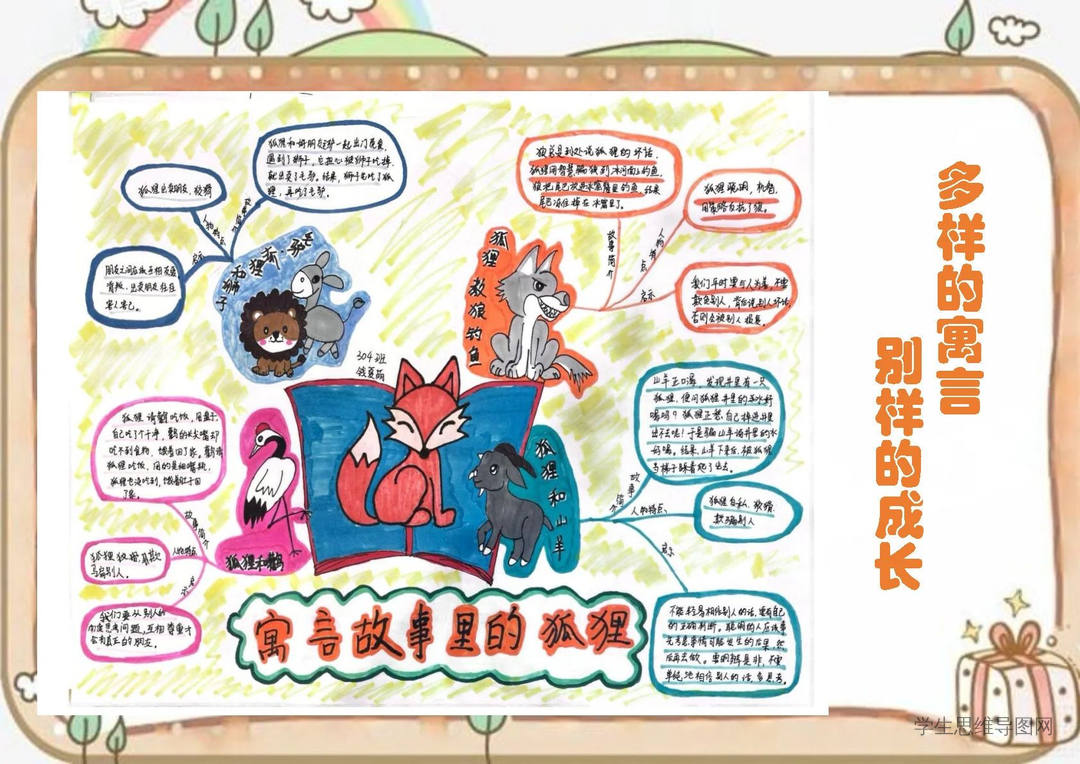 多样的寓言
别样的成长
狐狸和好朋友驴一起出门觅食,
遇到了狮子,它担心被狮子吃掉,
就出卖了毛驴。结果,狮子先吃了狐
狸,再吃了毛驴。
故事简介
狐狸出卖朋友,狡猾
人物特点
启示
朋友之间应该互相友爱,
背叛、出卖朋友往往
害人害己。
狮子和狐狸、毛驴
狼总是到处说狐狸的坏话,
狐狸用智慧骗狼到冰河面上钓鱼,
狼把尾巴放进冰窟窿里钓鱼,结果
尾巴冻住掉在冰窟里了。
故事简介
狐狸聪明,机智,
用策略反抗了狼。
人物特点
启示
我们平时要与人为善,不要
欺负别人,背后说别人坏话,
否则会被别人报复。
狐狸教狼钓鱼
304班
山羊正口渴,发现井里有一只
狐狸,便问狐狸井里的水好
喝吗?狐狸正愁自己掉进井里
出不去呢!于是骗山羊说井里的水
好喝。结果,山羊下来后,被狐狸
当梯子踩着爬了出去。
故事简介
狐狸自私、狡猾,
欺骗别人
人物特点
启示
不能轻易相信别人的话,要有自己
的正确判断。聪明的人应该事
先考虑事情可能发生的后果,然
后再去做。要明辨是非,不要
单纯地相信别人的话,多思考。
狐狸和山羊
狐狸请鹳吃饭,用盘子,
自己吃了个干净,鹳的长尖嘴却
吃不到食物,饿着回了家。鹳请
狐狸吃饭,用的是细嘴瓶,
狐狸也没吃到,饿着肚子回
了家。
故事简介
狐狸狡猾,喜欺
骗别人。
人物特点
启示
我们要从别人的
角度思考问题,互相尊重才
会有真正的朋友。
狐狸和鹳
寓言故事里的狐狸
学生思维导图网